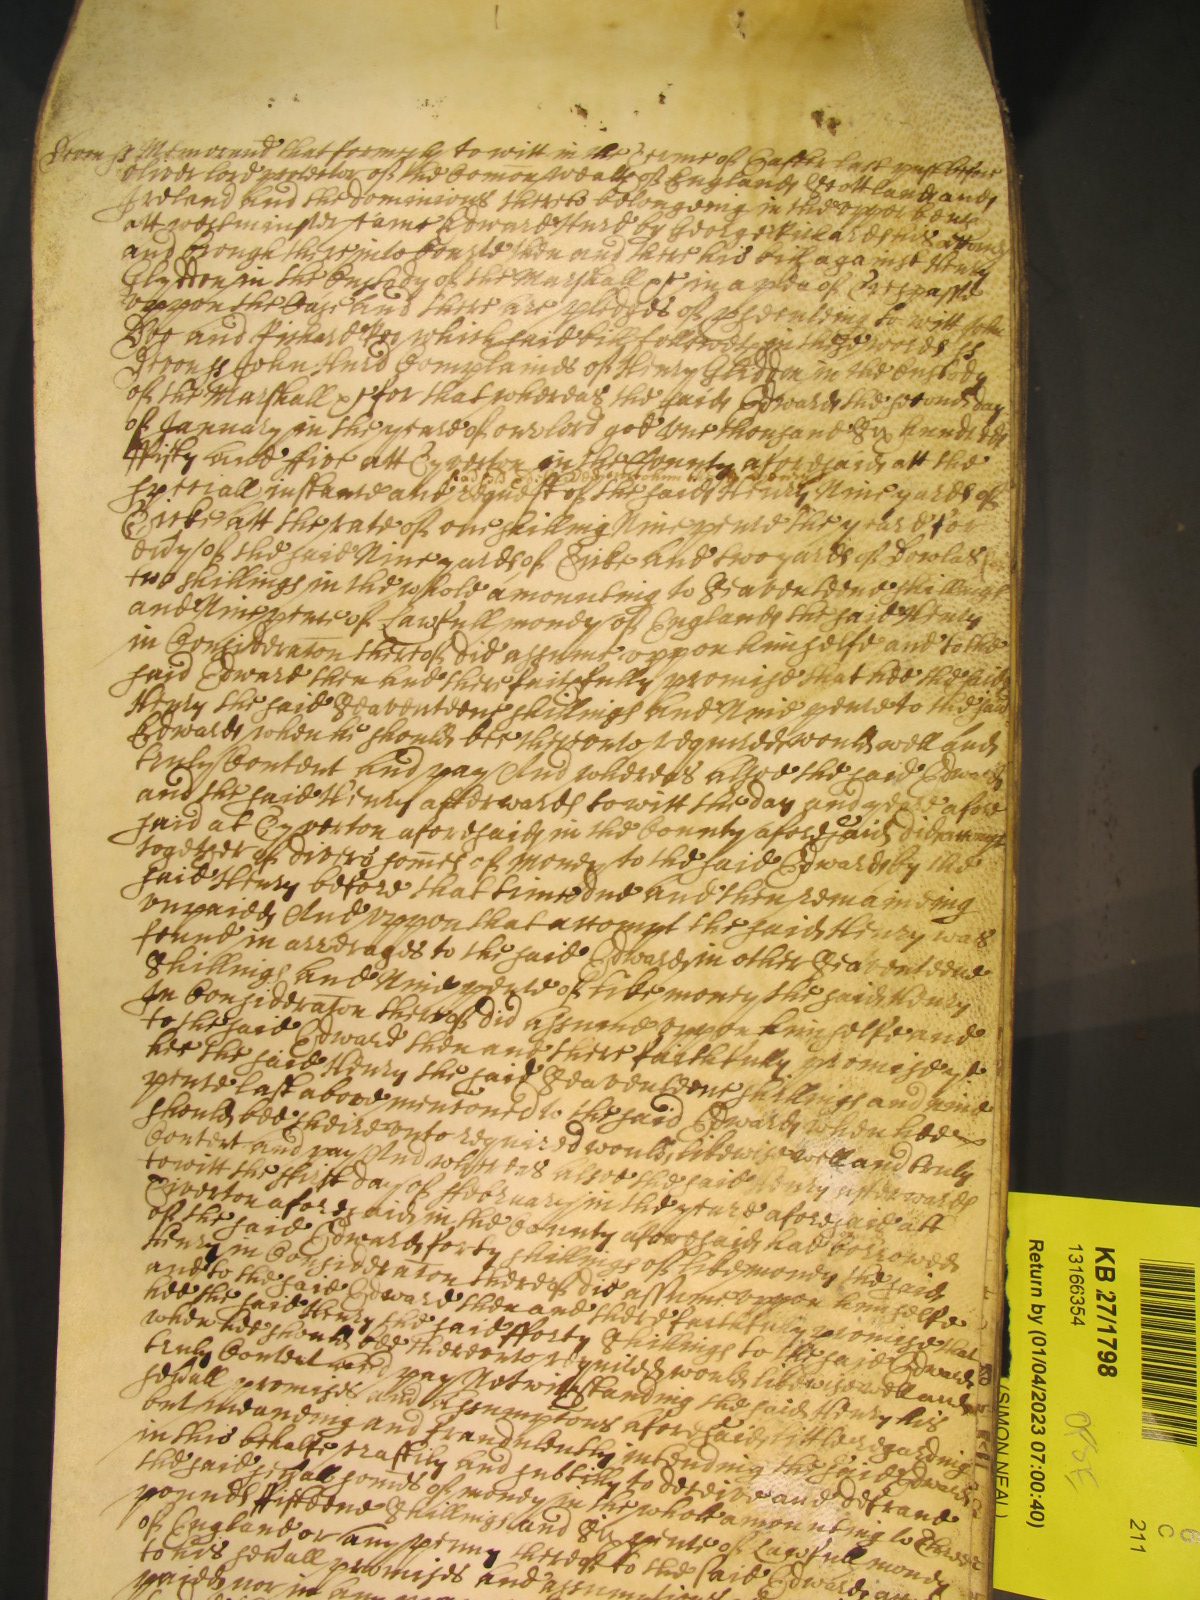 Devon ss Memorand that formerly to witt in the Terme of Easter last past before
Oliver lord protector of the Comonwealth of England Scotland and
Ireland and the dominions thereto belongeing in the upper bench
att westminster came Edward Hurd by George Rickards his Attorney
and brought here into Court then and there his bill against Henry
Glydon in the Custody of the Marshall &c in a plea of Trespasse
uppon the Case And there are pledges of prosecuteing to witt John
Doe and Richard Roo which said bill followeth in these words ss
Devon ss John Hurd Complaines of Henry Gliddon in the custody
of the Marshall &c for that whereas the said Edward the second day
of January in the yeare of our lord god one thousand Six hundred
ffifty and five att Tyverton in the County aforesaid att the
speciall instance and request of the said Henry Nine yards of
Ticke att the rate of one shilling Nine pence the yeard for
every of the said Nine yards of Ticke And two yards of Dowlas for
two shillings in the whole amounting to Seaventeene shillings
and Nine pence of Lawfull money of England the said Henry
in Consideraton thereof did assume uppon himselfe and to the
said Edward then and there faithfully promise that hee the said
Henry the said Seaventeene shillings And Nine pence to the said
Edward when he should bee thereonto required would well and
truly Content and pay And whereas allsoe the said Edward
and the said Henry afterwards to witt the day and yeare afore
said at Tyverton aforesaid in the County aforesaid did accompt
together of divers somes of money to the said Edward by the
said Henry before that time due and then remaineing
unpaid And uppon that accompt the said Henry was
found in arrerages to the said Edward in other Seaventeene
Shillings And Nine pence of like money the said Henry
In Consideraton thereof did assume uppon himselfe and
to the said Edward then and there faithfully promise yt
hee the said Henry the said Seaventeene shillings and nine
pence last above mentioned to the said Edward when hee
should bee theire unto required would likewise well and truly
Content and pay And whereas alsoe the said Henry afterwards
to witt the ffirst day of ffebruary in the yeare aforesaid att
Tiverton aforesaid in the County aforesaid had borrowed
of the said Edward forty shillings of like money the said
Henry in Consideraton thereof did assume uppon himselfe
and to the said Edward then and there faithfully promise that
hee the said Henry the said fforty Shillings to the said Edward
when hee should bee thereonto required would likewise well and
truly Content and pay Notwithstanding the said Henry his
severall promises and Assumptons aforesaid little regarding
but meaneing and fraudulently intending the said Edward
in this behalfe craftily and subtilly to deceive and defraud
the said severall somes of money in the whole amounting to Three
pounds ffifteene Shillings and Six pence of Lawfull money
of England or any penny thereof to the said Edward
to his severall promises and assumptions
paied nor in any
KB 27/1798
13166354
Return by (01/04/2023 07:00:40)
(SIMON NEAL)
C
211